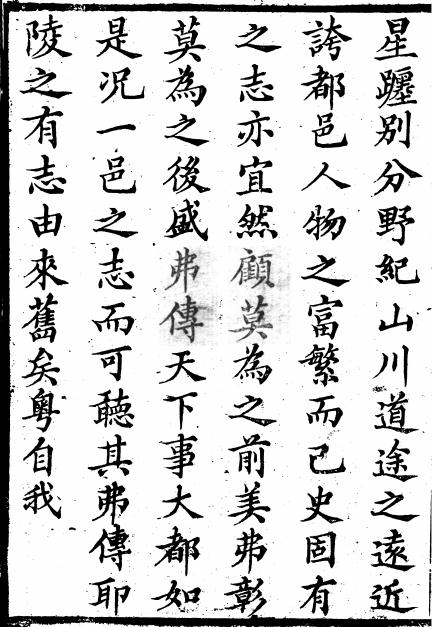 星躔別分野紀山川道途之遠近
誇都邑人物之富繁而已史固有
之志亦宜然顧莫為之前美弗彰
莫為之後盛弗傳天下事大都如
是况一邑之志而可聽其弗傳耶
陵之有志由來舊矣粵自我